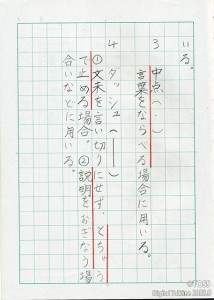 いる。
3 中点(・)
言葉をならべる場合に用いる。
4 ダッシュ(――)
①文末を言い切りにせず、とちゅう
で止める場合。②説明をおぎなう場
合いなどに用いる。
©TOSS
Digital Talkline 2003.6